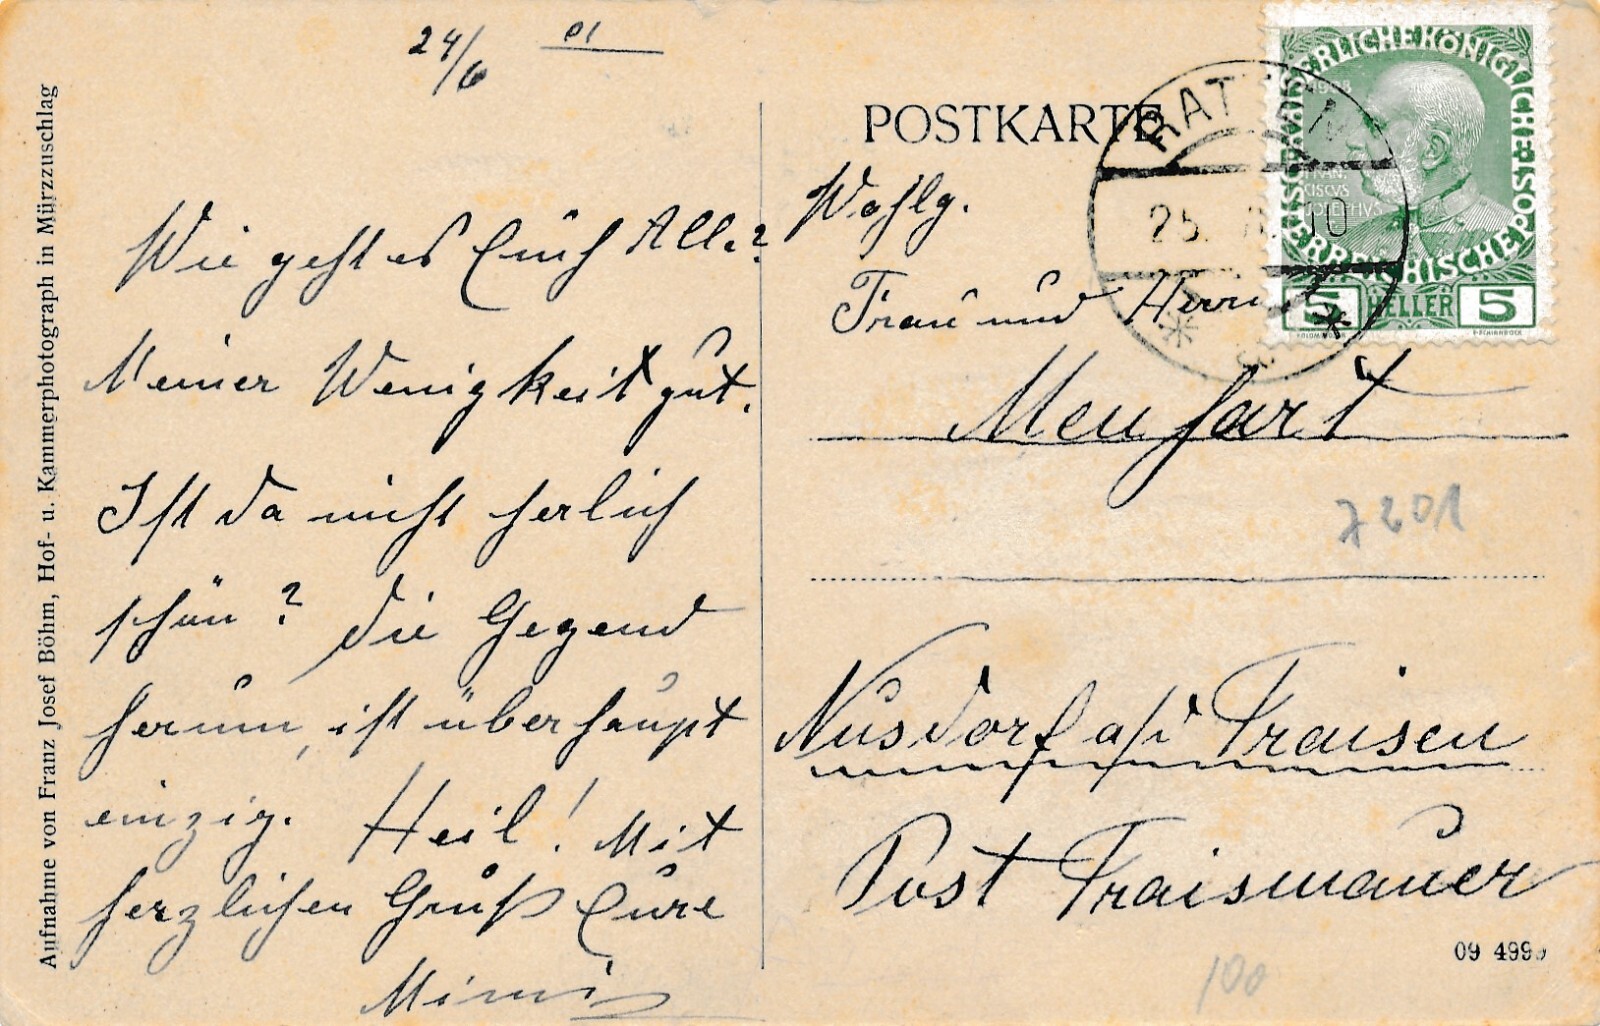 24/6 01
Wie geht es Euch Alle?
Meiner Wenigkeit gut.
Ist da nicht herlich
schön? die Gegend
herum, ist überhaupt
einzig. Heil! Mit
herzlichen Gruß Eure
Mimi
Aufnahme von Franz Josef Böhm, Hof- u. Kammerphotograph in Mürzzuschlag
POSTKARTE
Wohlg.
Frau und Herrn
Meufart
7201
Nusdorf a/d Traisen
Post Traismauer
09 499
100
KAISERLICHE KÖNIGLICHE ÖSTERREICHISCHE POST
1908
FRAN
CISCVS
IOSEPHVS
5 HELLER 5
25. 10